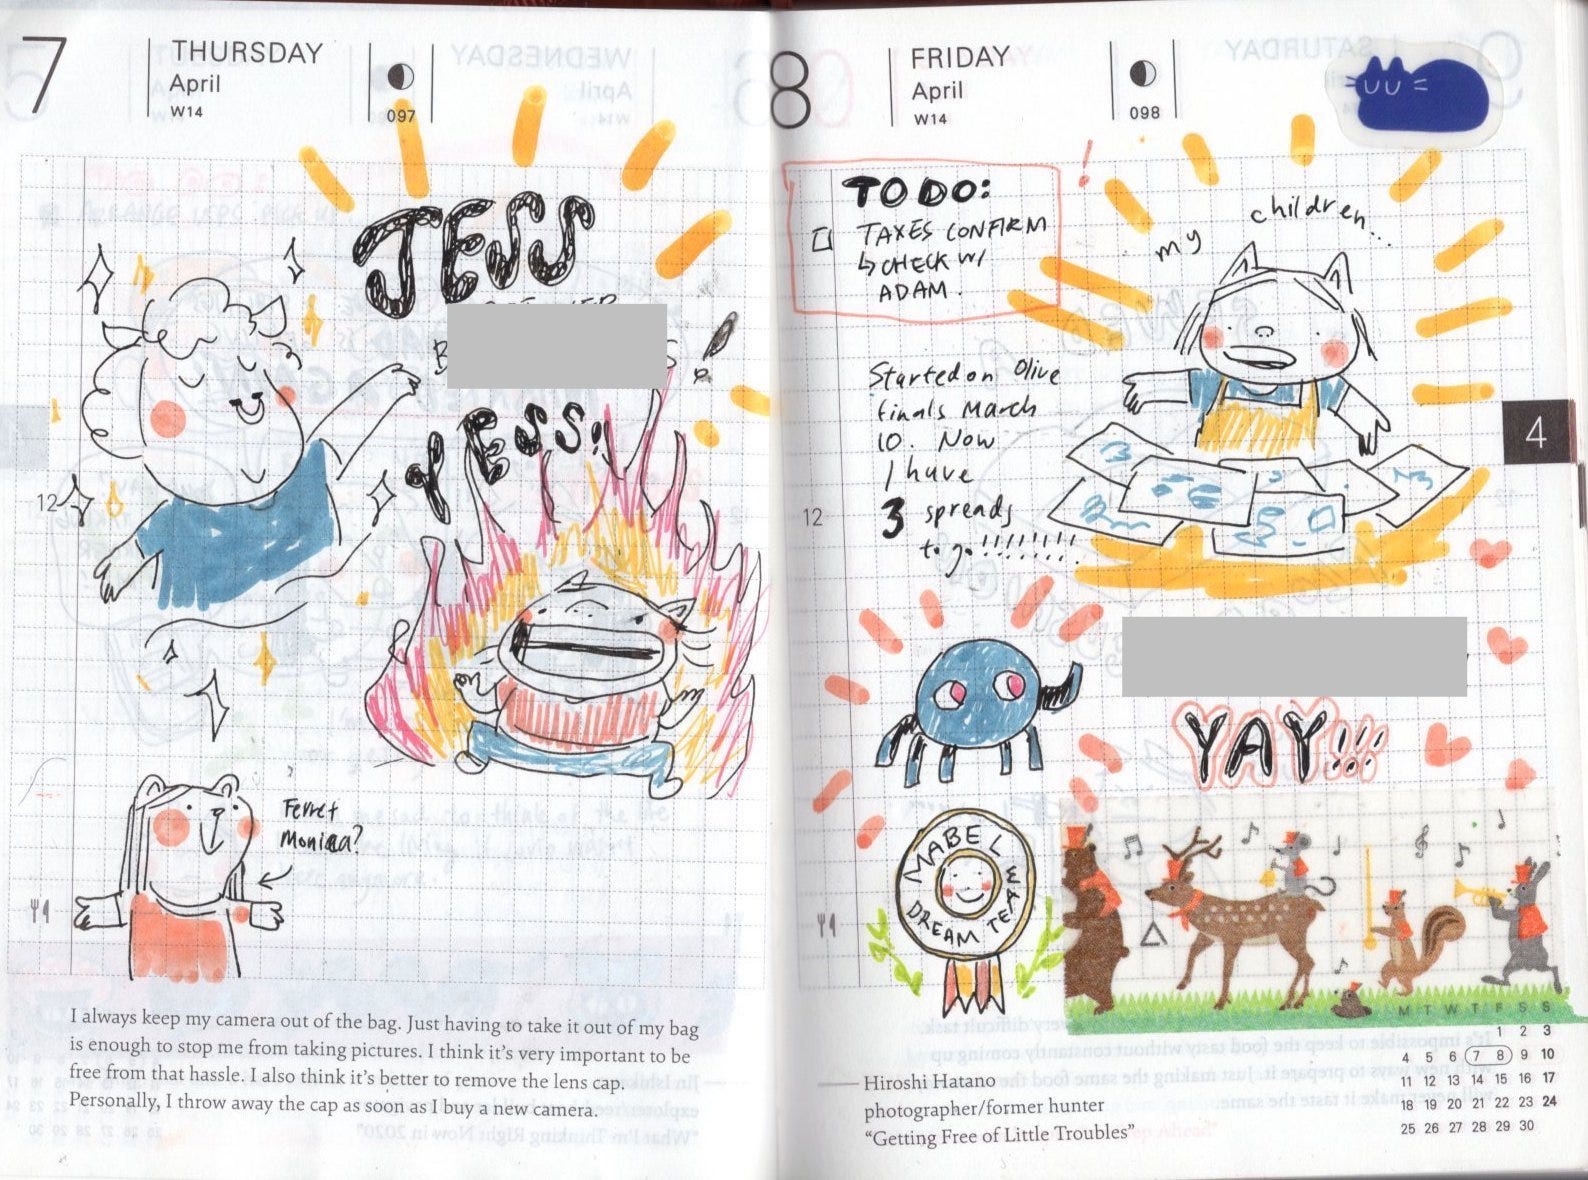 7
THURSDAY
April
W14
097
JESS
YESS!
12
Ferret
Monica?
I always keep my camera out of the bag. Just having to take it out of my bag
is enough to stop me from taking pictures. I think it's very important to be
free from that hassle. I also think it's better to remove the lens cap.
Personally, I throw away the cap as soon as I buy a new camera.
8
FRIDAY
April
W14
098
TO DO:
TAXES CONFIRM
↳ CHECK W/
ADAM.
!
my children...
4
Started on Olive
finals March
10. Now
I have
3 spreads
to go!!!!!!!!
12
YAY!!!
MABEL
DREAM TEAM
Hiroshi Hatano
photographer/former hunter
"Getting Free of Little Troubles"
M T W T F S S
1 2 3
4 5 6 7 8 9 10
11 12 13 14 15 16 17
18 19 20 21 22 23 24
25 26 27 28 29 30